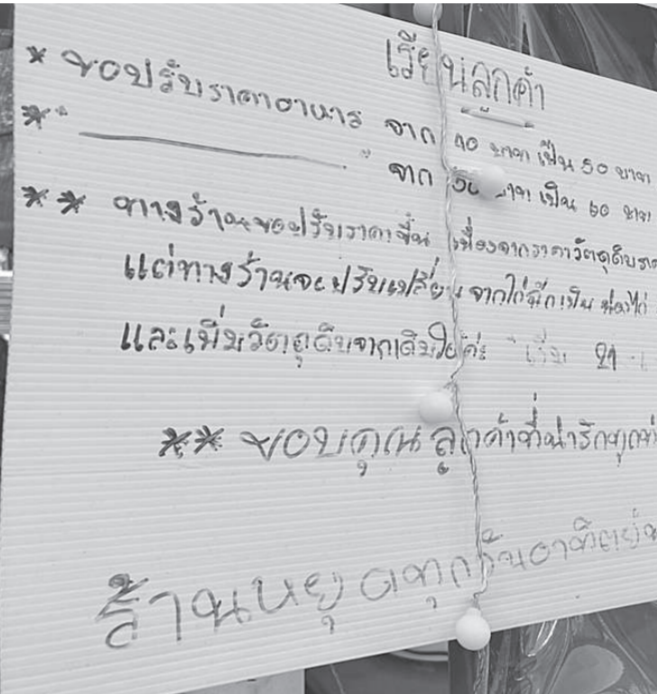 เรียนลูกค้า
* ขอปรับราคาอาหาร จาก 40 บาท เป็น 50 บาท
* " ——— " จาก 50 บาท เป็น 60 บาท
** ทางร้านขอปรับราคาขึ้น เนื่องจากราคาวัตถุดิบ
แต่ทางร้านจะปรับเปลี่ยน จากไก่ฉีกเป็น น่องไก่
และเพิ่มวัตถุดิบจากเดิมให้ค่ะ เริ่ม 21
** ขอบคุณลูกค้าที่น่ารักทุก
ร้านหยุดทุกวันอาทิตย์